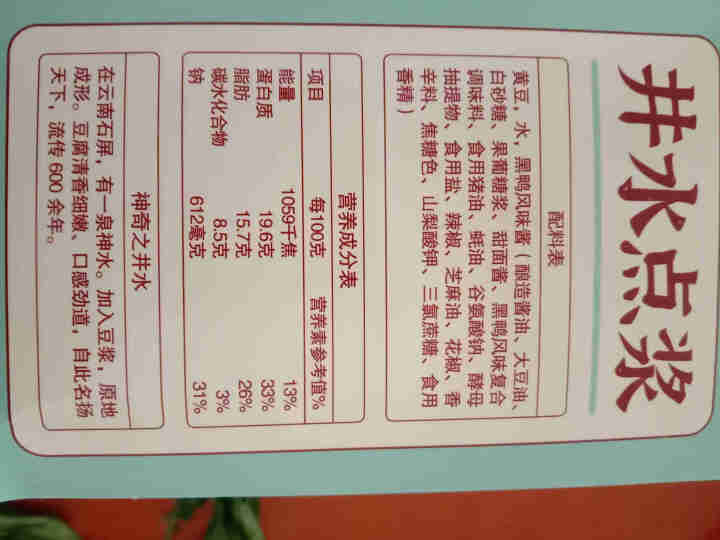 井水点浆
配料表
黄豆，水，黑鸭风味酱（酿造酱油、大豆油、
白砂糖、果葡糖浆、甜面酱、黑鸭风味复合
调味料、食用猪油、蚝油、谷氨酸钠、酵母
抽提物、食用盐、辣椒、芝麻油、花椒、香
辛料、焦糖色、山梨酸钾、三氯蔗糖、食用
香精）
营养成分表
项目 每100克 营养素参考值%
能量 1059千焦 13%
蛋白质 19.6克 33%
脂肪 15.7克 26%
碳水化合物 8.5克 3%
钠 612毫克 31%
神奇之井水
在云南石屏，有一泉神水。加入豆浆，原地
成形。豆腐清香细嫩、口感劲道，自此名扬
天下，流传600余年。